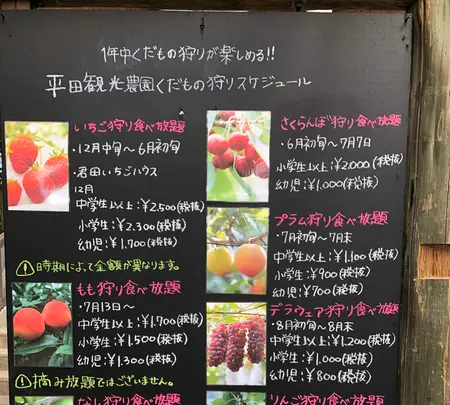 1年中くだもの狩りが楽しめる!!
平田観光農園くだもの狩りスケジュール
いちご狩り食べ放題
・12月中旬〜6月初旬
・君田いちごハウス
12月
中学生以上:¥2,500(税抜)
小学生:¥2,300(税抜)
幼児:¥1,700(税抜)
!時期によって金額が異なります。
もも狩り食べ放題
・7月13日〜
中学生以上:¥1,700(税抜)
小学生:¥1,500(税抜)
幼児:¥1,300(税抜)
!摘み放題ではございません。
なし狩り食べ放題
さくらんぼ狩り食べ放題
・6月初旬〜7月7日
小学生以上:¥2,000(税抜)
幼児:¥1,000(税抜)
プラム狩り食べ放題
・7月初旬〜7月末
中学生以上:¥1,100(税抜)
小学生:¥900(税抜)
幼児:¥700(税抜)
デラウェア狩り食べ放題
・8月初旬〜8月末
中学生以上:¥1,200(税抜)
小学生:¥1,000(税抜)
幼児:¥800(税抜)
りんご狩り食べ放題